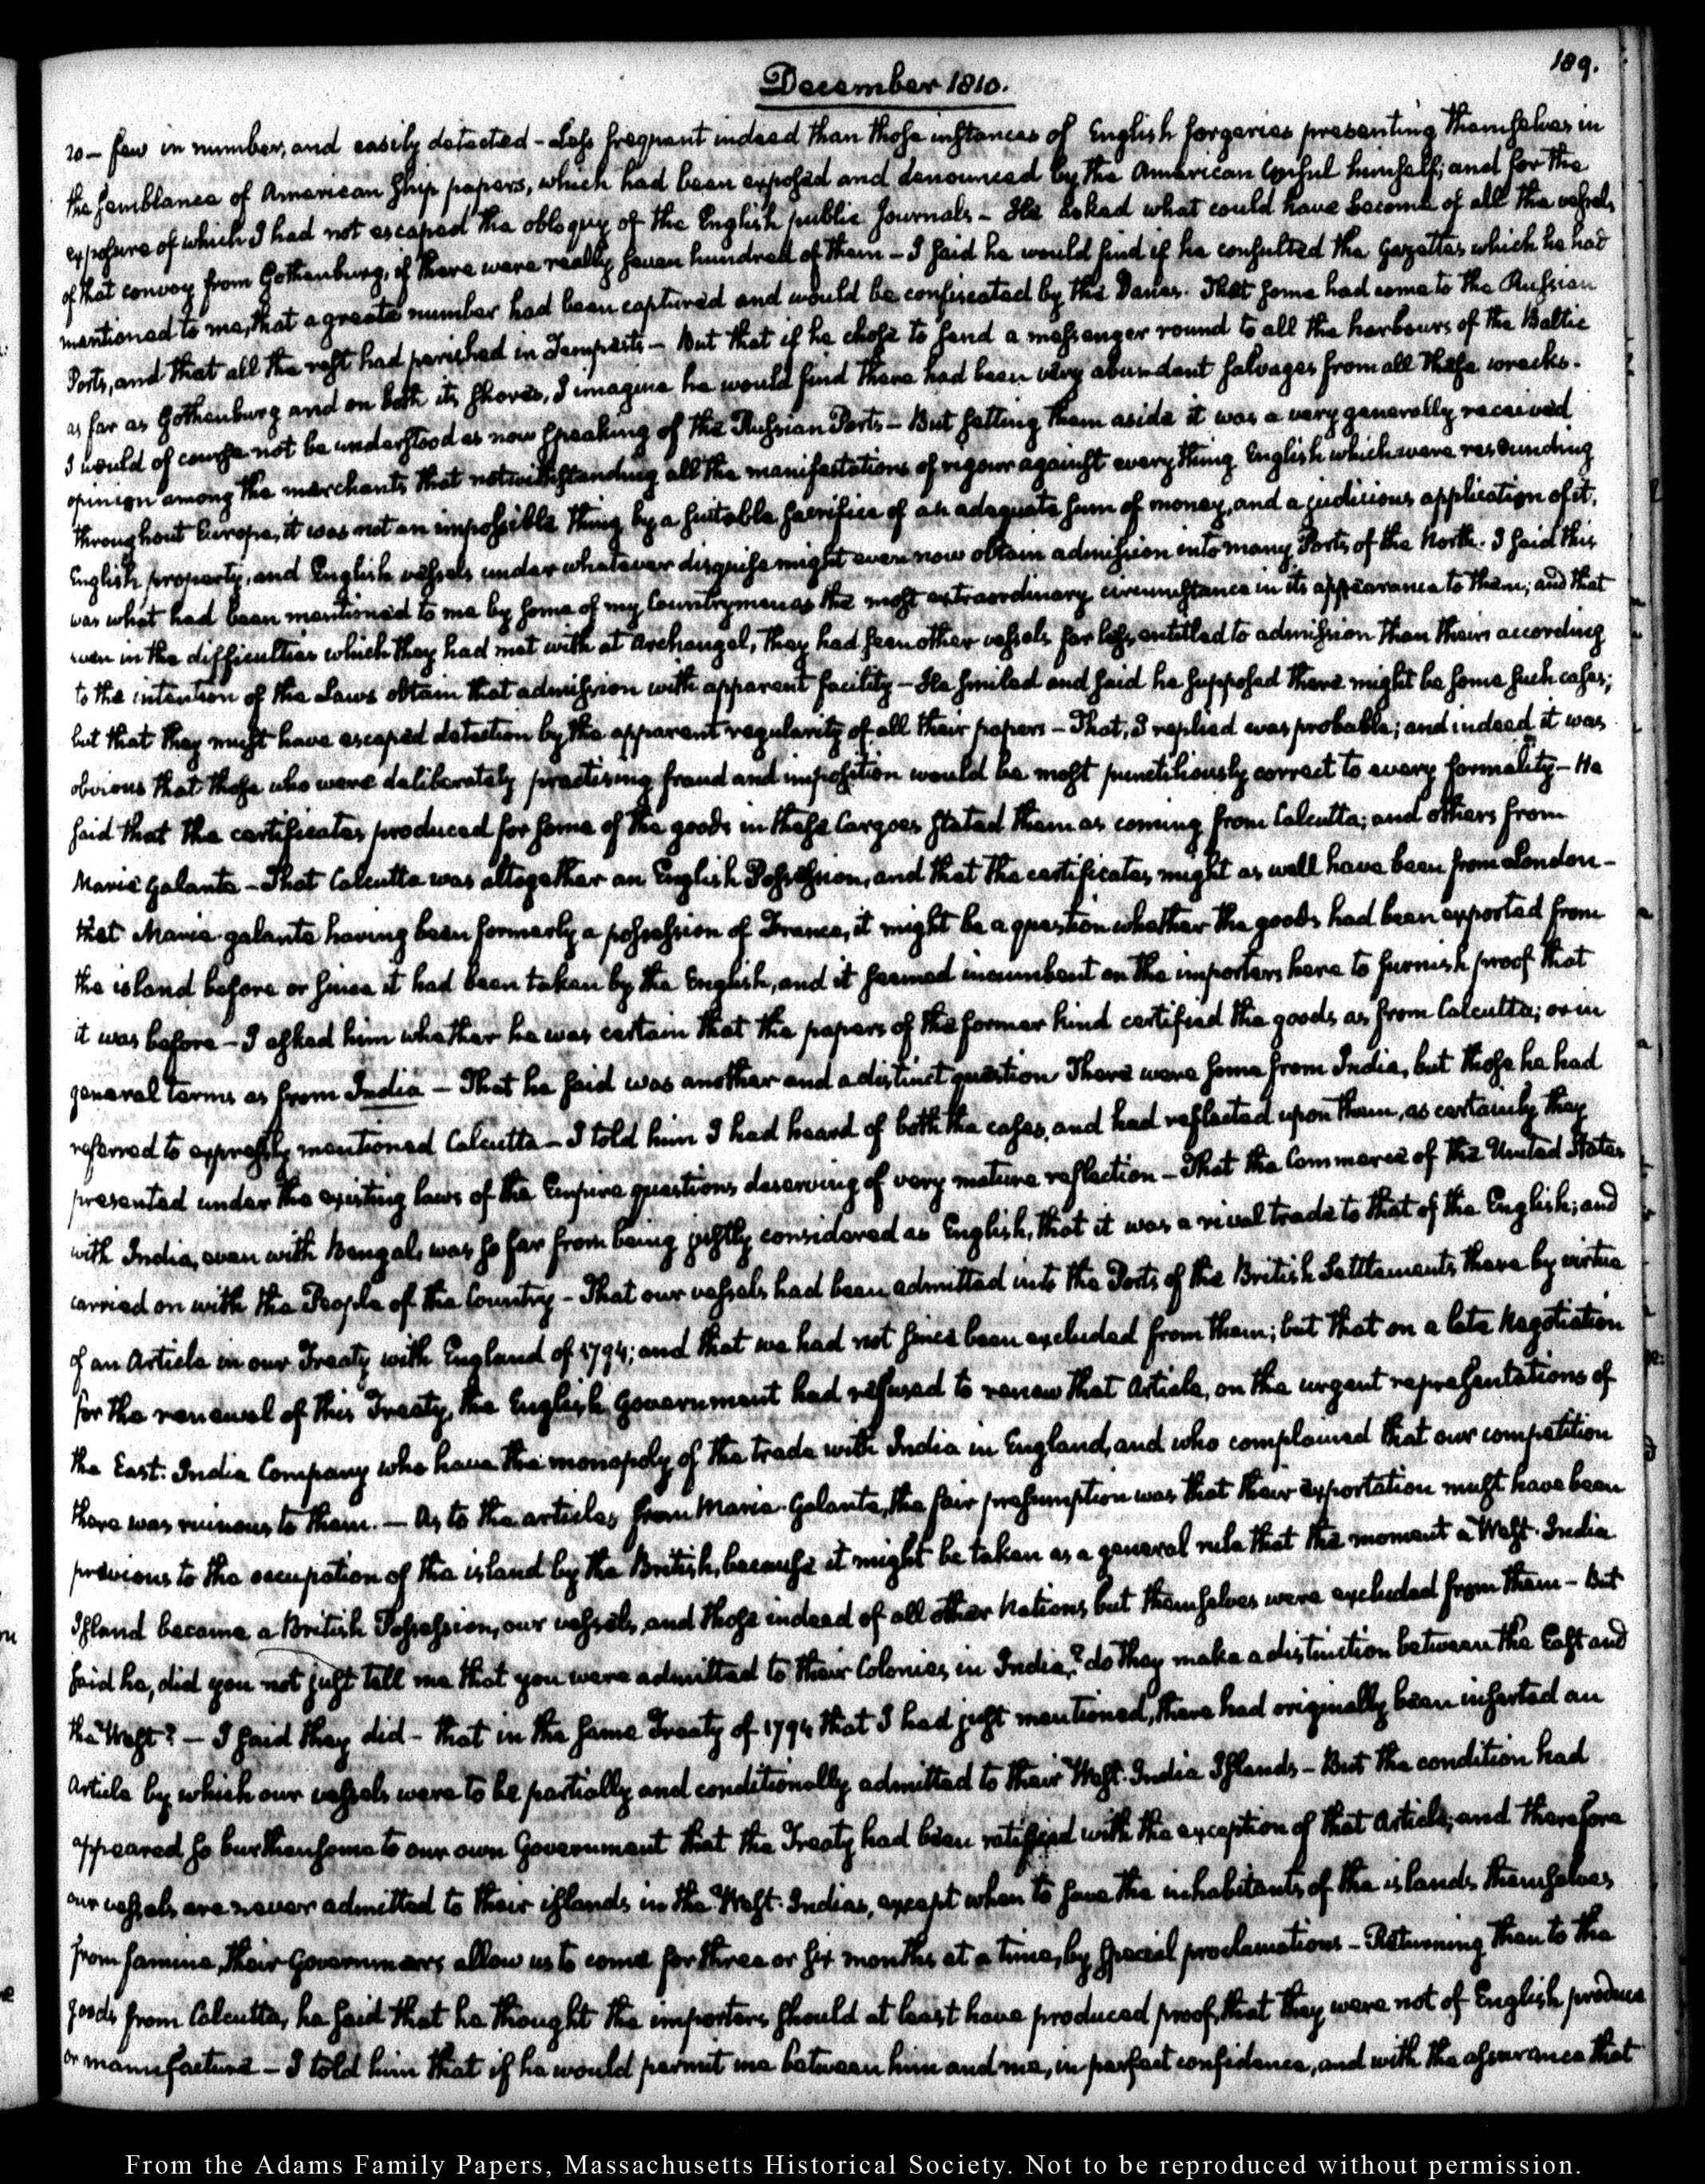 189.
December 1810.
20 — few in number, and easily detected - Less frequent indeed than those instances of English forgeries presenting themselves in
the semblance of American Ship papers, which had been exposed and denounced by the American Consul himself; and for the
exposure of which I had not escaped the obloquy of the English public Journals - He asked what could have become of all the vessels
of that convoy from Gothenburg, if there were really seven hundred of them - I said he would find if he consulted the Gazettes which he had
mentioned to me, that a greate number had been captured and would be confiscated by the Danes. That some had come to the Russian
Ports, and that all the rest had perished in Tempests - But that if he chose to send a messenger round to all the harbours of the Baltic
as far as Gothenburg and on both its shores, I imagine he would find there had been very abundant salvages from all these wrecks.
I would of course not be understood as now speaking of the Russian Ports - But setting them aside it was a very generally received
opinion among the merchants that notwithstanding all the manifestations of rigour against every thing English which were resounding
throughout Europe, it was not an impossible thing by a suitable sacrifice of an adequate sum of money, and a judicious application of it,
English property, and English vessels under whatever disguise might even now obtain admission into many Ports of the North. I said this
was what had been mentioned to me by some of my Countrymen as the most extraordinary circumstance in its appearance to them; and that
even in the difficulties which they had met with at Archangel, they had seen other vessels far less entitled to admission than theirs according
to the intention of the Laws obtain that admission with apparent facility - He smiled and said he supposed there might be some such cases;
but that they must have escaped detection by the apparent regularity of all their papers - That, I replied was probable; and indeed it was
obvious that those who were deliberately practising fraud and imposition would be most punctiliously correct to every formality - He
said that the certificates produced for some of the goods in these Cargoes stated them as coming from Calcutta; and others from
Marie Galante - That Calcutta was altogether an English Possession, and that the certificates might as well have been from London -
that Marie-galante having been formerly a possession of France, it might be a question whether the goods had been exported from
the island before or since it had been taken by the English, and it seemed incumbent on the importers here to furnish proof that
it was before - I asked him whether he was certain that the papers of the former kind certified the goods as from Calcutta; or in
general terms as from India - That he said was another and a distinct question There were some from India, but those he had
referred to expressly mentioned Calcutta - I told him I had heard of both the cases, and had reflected upon them, as certainly they
presented under the existing laws of the Empire questions deserving of very mature reflection - That the Commerce of the United States
with India, even with Bengal, was so far from being justly considered as English, that it was a rival trade to that of the English; and
carried on with the People of the Country - That our vessels had been admitted into the Ports of the British Settlements there by virtue
of an Article in our Treaty with England of 1794; and that we had not since been excluded from them; but that on a late Negotiation
for the renewal of this Treaty, the English Government had refused to renew that Article, on the urgent representations of
the East-India Company who have the monopoly of the trade with India in England, and who complained that our competition
there was ruinous to them. — As to the articles from Marie-Galante, the fair presumption was that their exportation must have been
previous to the occupation of the island by the British, because it might be taken as a general rule that the moment a West-India
Island became a British Possession, our vessels, and those indeed of all other Nations but themselves were excluded from them - But
said he, did you not just tell me that you were admitted to their Colonies in India? do they make a distinction between the East and
the West? - I said they did - that in the same Treaty of 1794 that I had just mentioned, there had originally been inserted an
Article by which our vessels were to be partially and conditionally admitted to their West-India Islands - But the condition had
appeared so burthensome to our own Government that the Treaty had been ratified with the exception of that Article; and therefore
our vessels are never admitted to their islands in the West-Indies, except when to save the inhabitants of the islands themselves
from famine, their Governments allow us to come for three or six months at a time, by special proclamations - Returning then to the
goods from Calcutta, he said that he thought the importers should at least have produced proof, that they were not of English produce
or manufacture - I told him that if he would permit me between him and me, in perfect confidence, and with the assurance that
From the Adams Family Papers, Massachusetts Historical Society. Not to be reproduced without permission.